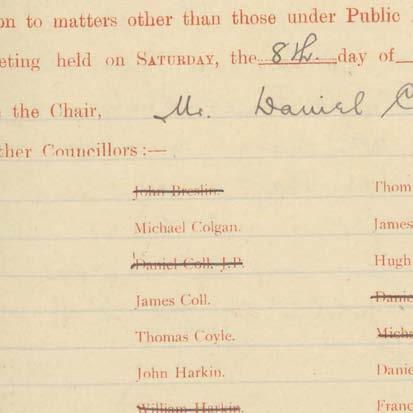 on to matters other than those under Public
eting held on SATURDAY, the 8th day of
the Chair, Mr. Daniel C
ther Councillors:—
John Breslin. Thom
Michael Colgan. James
Daniel Coll, J.P. Hugh
James Coll. Danie
Thomas Coyle. Micha
John Harkin. Danie
William Harkin. Franc